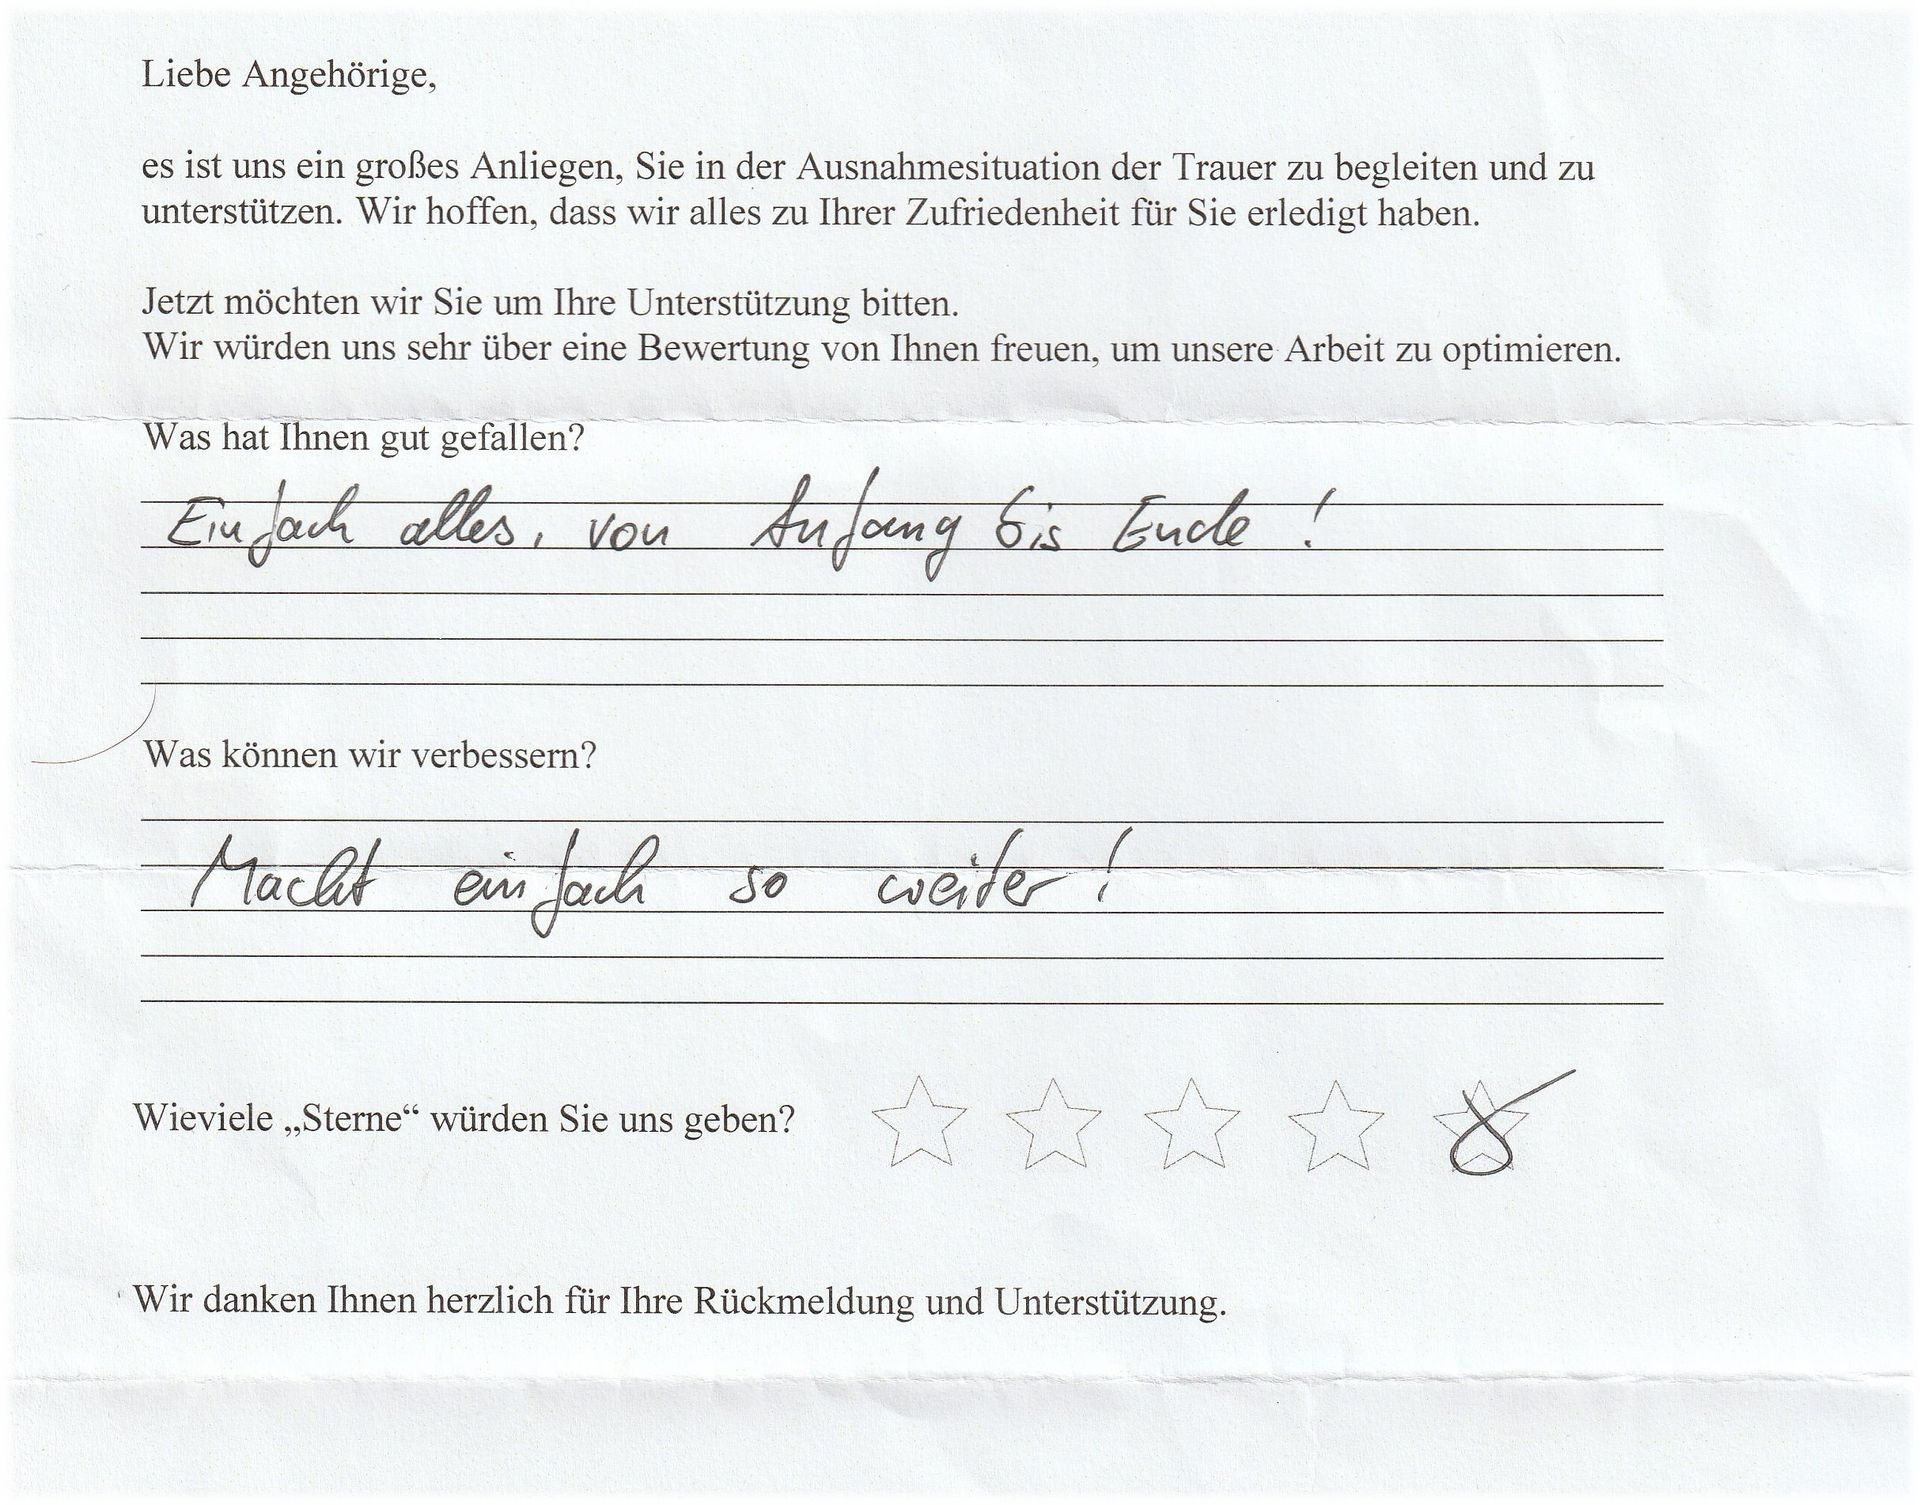 Liebe Angehörige,
es ist uns ein großes Anliegen, Sie in der Ausnahmesituation der Trauer zu begleiten und zu
unterstützen. Wir hoffen, dass wir alles zu Ihrer Zufriedenheit für Sie erledigt haben.
Jetzt möchten wir Sie um Ihre Unterstützung bitten.
Wir würden uns sehr über eine Bewertung von Ihnen freuen, um unsere Arbeit zu optimieren.
Was hat Ihnen gut gefallen?
Einfach alles, von Anfang bis Ende!
Was können wir verbessern?
Macht einfach so weiter!
Wieviele „Sterne“ würden Sie uns geben?
Wir danken Ihnen herzlich für Ihre Rückmeldung und Unterstützung.